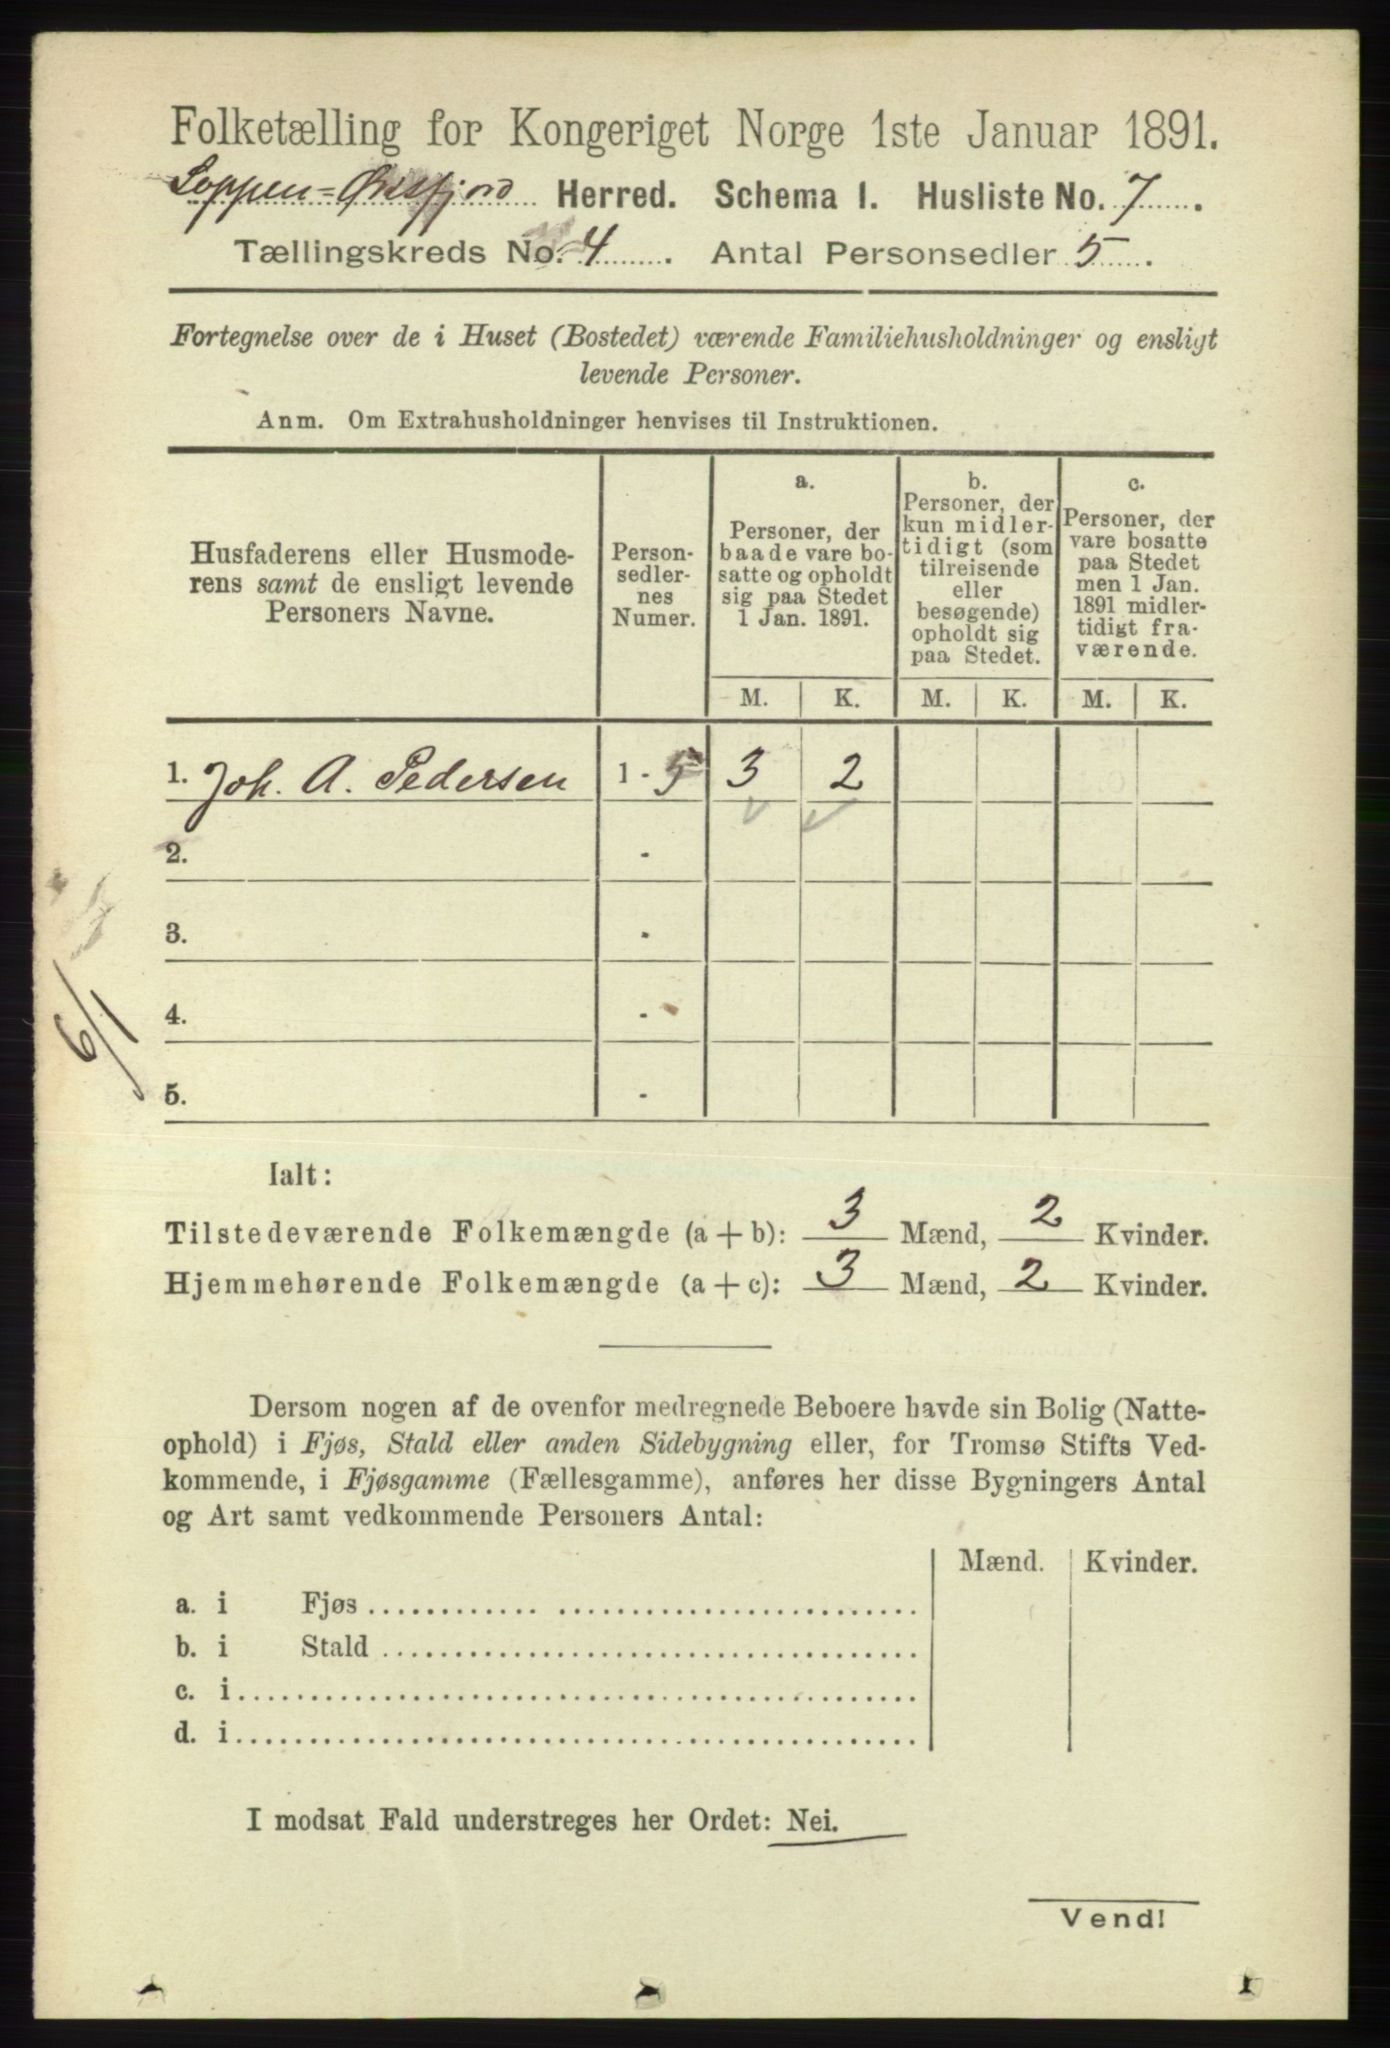 Folketælling for Kongeriget Norge 1ste Januar 1891.
Loppen=Øksfjord Herred. Schema I. Husliste No. 7.
Tællingskreds No. 4. Antal Personsedler 5.
Fortegnelse over de i Huset (Bostedet) værende Familiehusholdninger og ensligt
levende Personer.
Anm. Om Extrahusholdninger henvises til Instruktionen.
Husfaderens eller Husmode-
rens samt de ensligt levende
Personers Navne.
Person-
sedler-
nes
Numer.
a.
Personer, der
baade vare bo-
satte og opholdt
sig paa Stedet
1 Jan. 1891.
b.
Personer, der
kun midler-
tidigt (som
tilreisende
eller
besøgende)
opholdt sig
paa Stedet.
c.
Personer, der
vare bosatte
paa Stedet
men 1 Jan.
1891 midler-
tidigt fra-
værende.
M. K. M. K. M. K.
1. Joh. A. Pedersen 1 - 5 3 2
2. -
3. -
4. -
5. -
6/1
Ialt:
Tilstedeværende Folkemængde (a + b): 3 Mænd, 2 Kvinder.
Hjemmehørende Folkemængde (a + c): 3 Mænd, 2 Kvinder.
Dersom nogen af de ovenfor medregnede Beboere havde sin Bolig (Natte-
ophold) i Fjøs, Stald eller anden Sidebygning eller, for Tromsø Stifts Ved-
kommende, i Fjøsgamme (Fællesgamme), anføres her disse Bygningers Antal
og Art samt vedkommende Personers Antal:
Mænd. Kvinder.
a. i Fjøs
b. i Stald
c. i
d. i
I modsat Fald understreges her Ordet: Nei.
Vend!